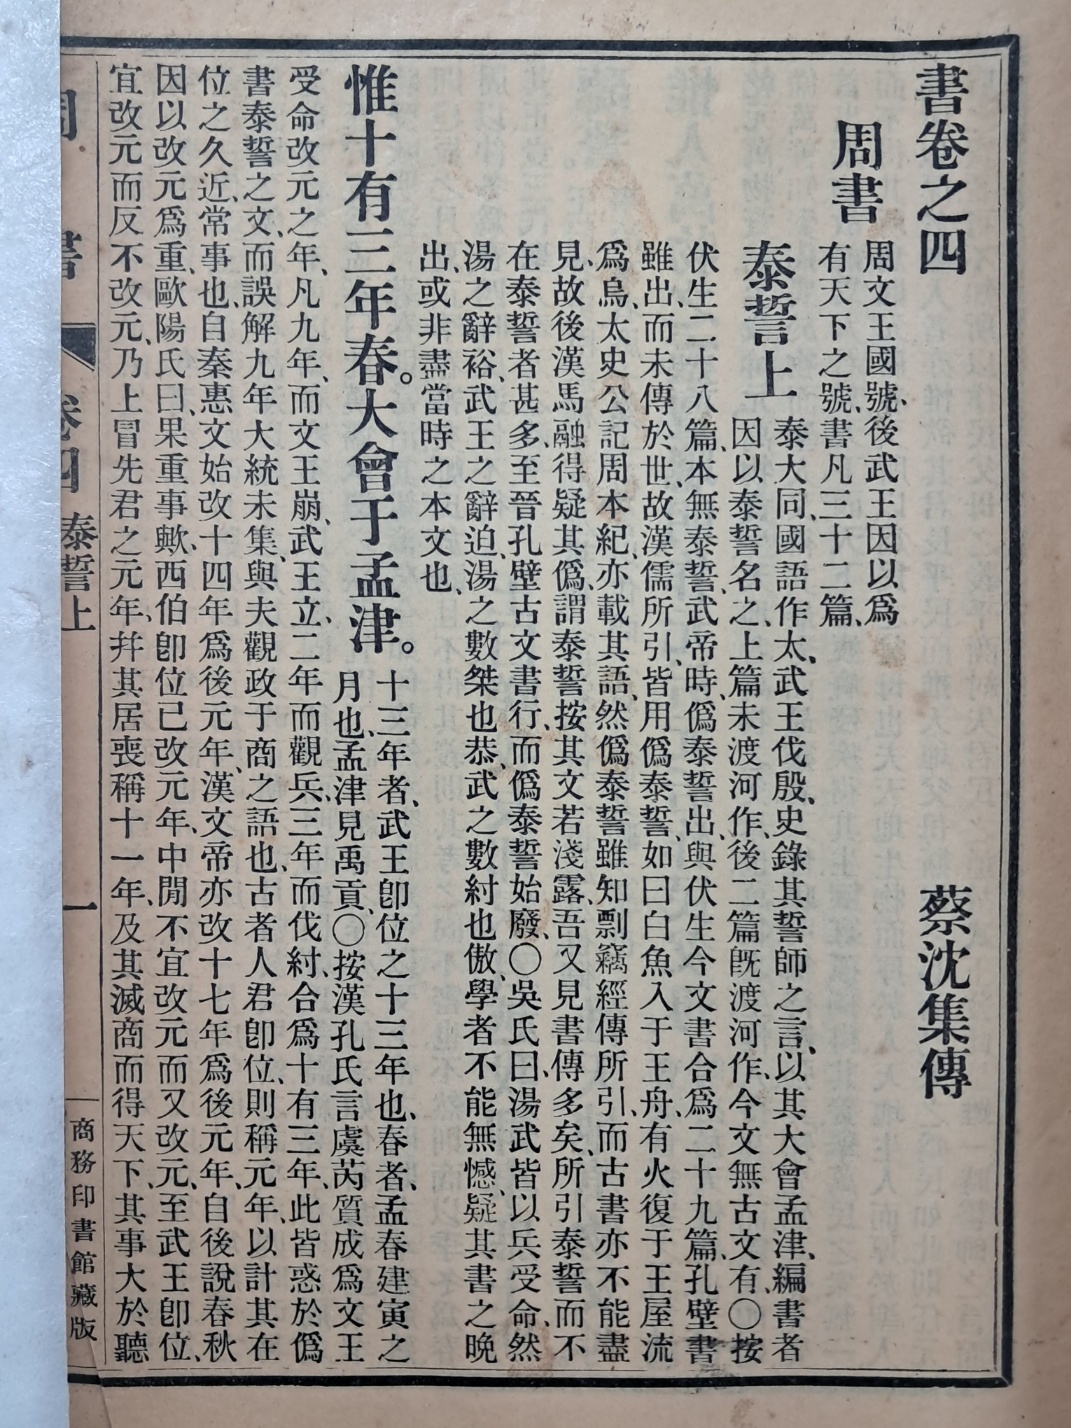 書卷之四　蔡沈集傳
周書
周文王國號、後武王因以爲
有天下之號、書凡三十二篇、
泰誓上
泰大同、國語作太、武王伐殷、史錄其誓師之言、以其大會孟津、編書者
因以泰誓名之、上篇未渡河作、後二篇旣渡河作、今文無古文有、○按
伏生二十八篇、本無泰誓、武帝時、僞泰誓出、與伏生今文書合爲二十九篇、孔壁書
雖出、而未傳於世、故漢儒所引、皆用僞泰誓、如曰白魚入于王舟、有火復于王屋流
爲烏、太史公記周本紀、亦載其語、然僞泰誓雖知剽竊經傳所引、而古書亦不能盡
見、故後漢馬融得疑其僞、謂泰誓按其文若淺露、吾又見書傳多矣、所引泰誓而不
在泰誓者甚多、至晉孔壁古文書行、而僞泰誓始廢、○吳氏曰、湯武皆以兵受命、然
湯之辭裕、武王之辭迫、湯之數桀也恭、武之數紂也傲、學者不能無憾、疑其書之晚
出、或非盡當時之本文也、
惟十有三年春。大會于孟津。
十三年者、武王卽位之十三年也、春者、孟春建寅之
月也、孟津見禹貢、○按漢孔氏言虞芮質成爲文王
受命改元之年、凡九年、而文王崩、武王立二年而觀兵、三年而伐紂、合爲十有三年、此皆惑於僞
書泰誓之文、而誤解九年大統未集、與夫觀政于商之語也、古者人君卽位、則稱元年、以計其在
位之久近、常事也、自秦惠文始改十四年爲後元年、漢文帝亦改十七年爲後元年、自後說春秋
因以改元爲重、歐陽氏曰、果重事歟、西伯卽位已改元年、中閒不宜改元而又改元、至武王卽位、
宜改元而反不改元、乃上冒先君之元年、幷其居喪稱十一年、及其滅商而得天下、其事大於聽
書　卷四　泰誓上　一　商務印書館藏版